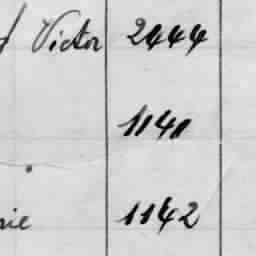 Victor 2444
1141
1142